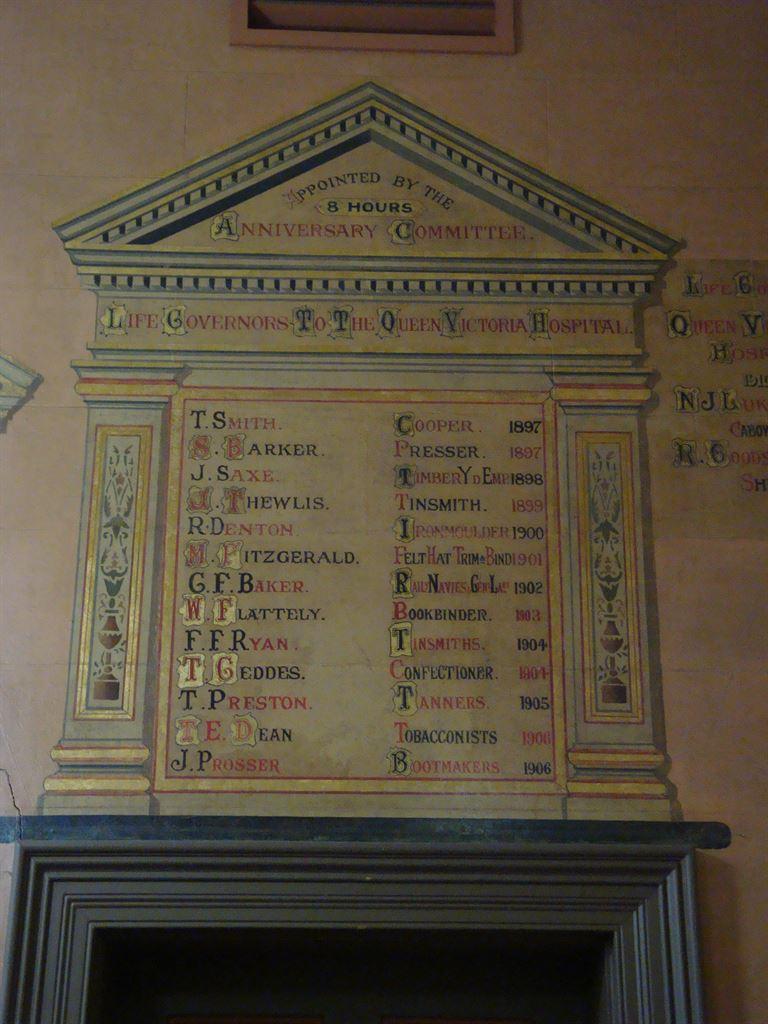 APPOINTED BY THE
8 HOURS
ANNIVERSARY COMMITTEE.
LIFE GOVERNORS TO T THE QUEEN VICTORIA HOSPITAL.
T. SMITH. COOPER. 1897
S. BARKER. PRESSER. 1897
J. SAXE. TIMBER YD EMP 1898
J. THEWLIS. TINSMITH. 1899
R. DENTON IRONMOULDER 1900
M. FITZGERALD. FELT HAT TRIM & BIND 1901
G. F. BAKER. 1902
W. FLATTELY. BOOKBINDER. 1903
F. F. RYAN. TINSMITHS. 1904
T. GEDDES. CONFECTIONER. 1804
T. PRESTON. TANNERS. 1905
T E. DEAN TOBACCONISTS 1906
J. PROSSER BOOTMAKERS 1906
LIFE
QUEEN
N J
R.